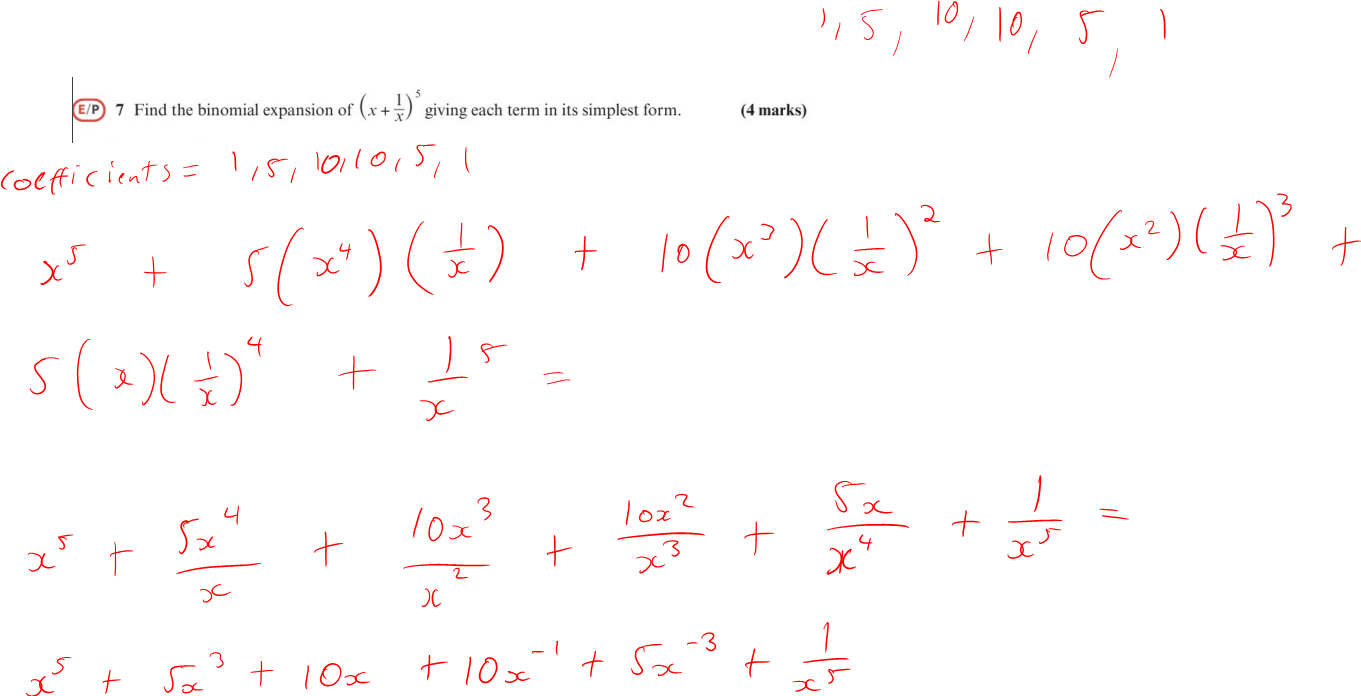 1, 5, 10, 10, 5, 1
E/P 7 Find the binomial expansion of (x + 1/x)^5 giving each term in its simplest form. (4 marks)
coefficients = 1, 5, 10, 10, 5, 1
x^5 + 5(x^4)(1/x) + 10(x^3)(1/x)^2 + 10(x^2)(1/x)^3 +
5(x)(1/x)^4 + 1/x^5 =
x^5 + 5x^4/x + 10x^3/x^2 + 10x^2/x^3 + 5x/x^4 + 1/x^5 =
x^5 + 5x^3 + 10x + 10x^-1 + 5x^-3 + 1/x^5